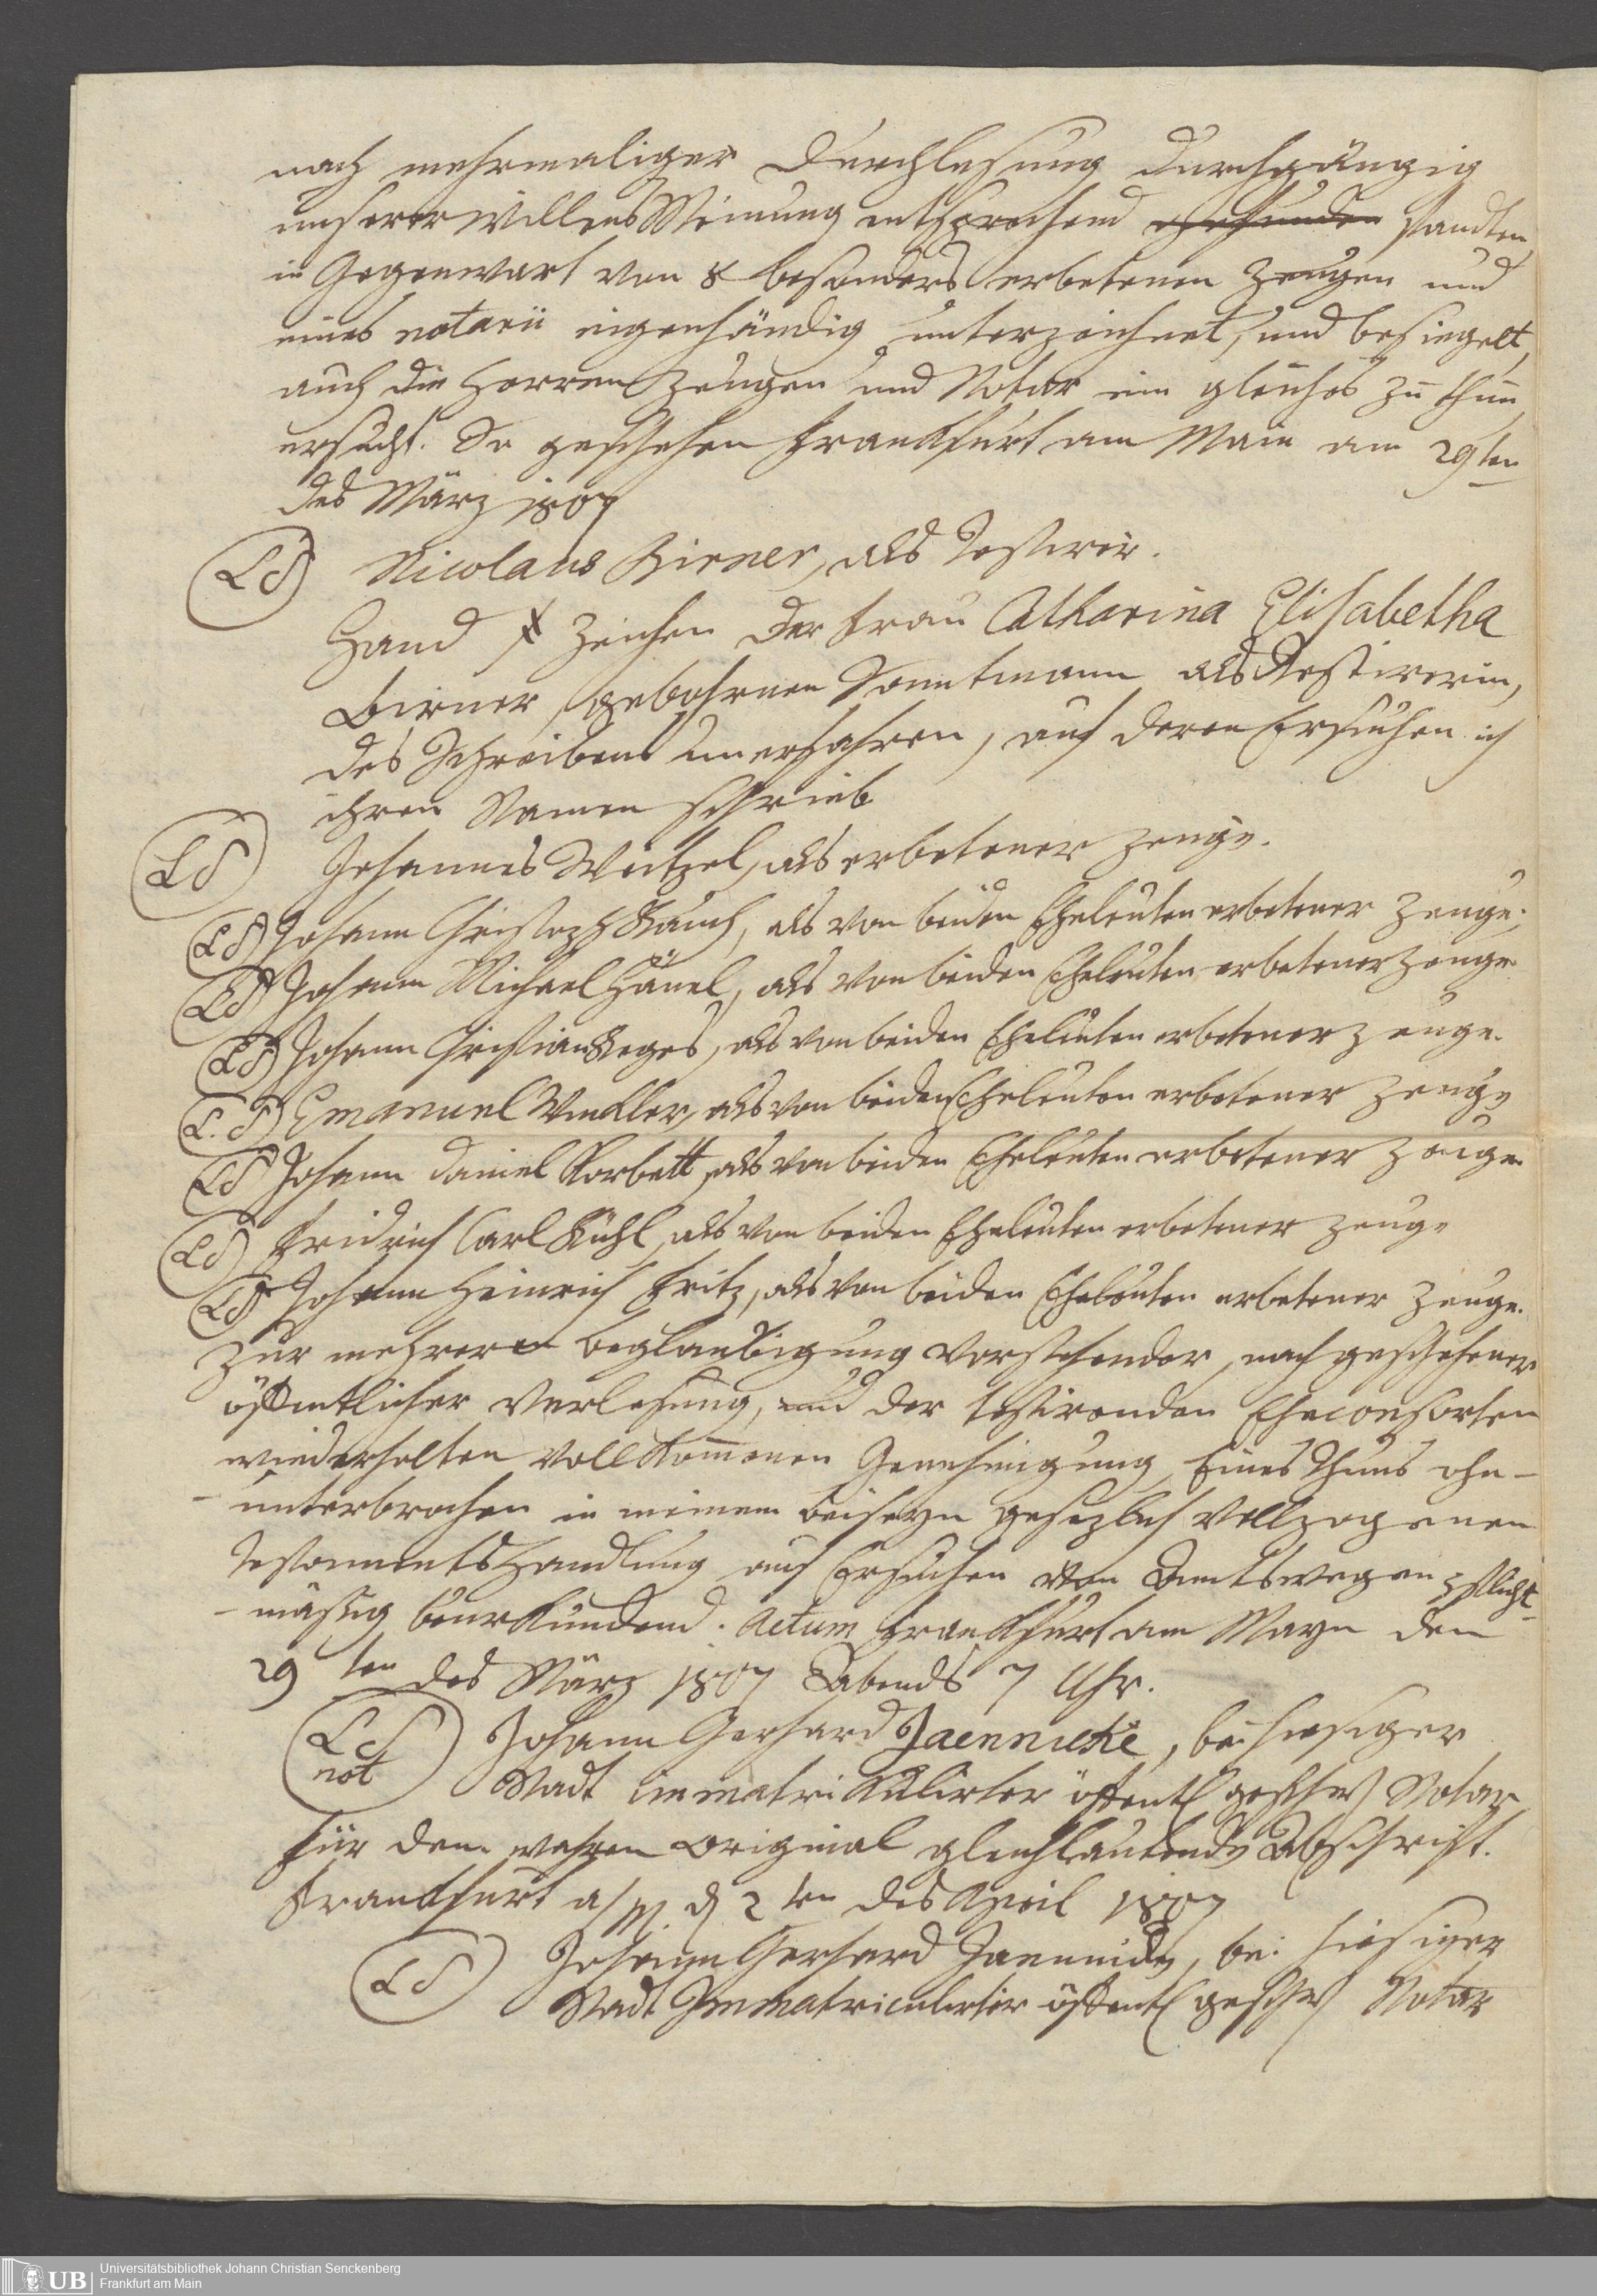 nach mehrmaliger Durchlesung durchgängig
unserer Willens Meinung entsprechend gefunden standten
in Gegenwart von 8 besonders erbetenen Zeugen und
eines notarii eigenhändig unterzeichnet, und besiegelt,
auch die Herren Zeugen und Notar ein gleiches zu thun
ersucht. So geschehen Frankfurt am Main am 29ten
des März 1807
LS Nicolaus Birner, als Testirer.
Hand + Zeichen der Frau Catharina Elisabetha
Birner, gebohrnen Sonntmann als Testirerin,
des Schreibens unerfahren, auf deren Ersuchen ich
ihren Namen schrieb
LS Johannes Weitzel, als erbetener Zeuge.
LS Johann Christoph Rauch, als von beiden Eheleuten erbetener Zeuge;
LS Johann Michael Hänel, als von beiden Eheleuten erbetener Zeuge
LS Johann Christian Reges, als von beiden Eheleuten erbetener Zeuge.
L. S Emanuel Müller, als von beiden Eheleuten erbetener Zeuge
LS Johann Daniel Korbett, als von beiden Eheleuten erbetener Zeuge
LS Fridrich Carl Kühl, als von beiden Eheleuten erbetener Zeuge
LS Johann Heinrich Fritz, als von beiden Eheleuten erbetener Zeuge.
Zur mehreren Beglaubigung vorstehender, nach geschehener
öffentlicher Verlesung, und der testirenden Eheconsorten
wiederholten vollkommenen Genehmigung, Eines Thuns ohn-
-unterbrochen in meinem Beiseyn gesezlich vollzogenen
Testamentshandlung auf Ersuchen von Amtswegen pflicht-
-mäßig beurkundend. Actum Frankfurt am Mayn den
29ten des März 1807 Abends 7 Uhr.
LS Johann Gerhard Jaennicke, bei hiesiger
not Stadt immatrikulirter öffentl geschw Notar
für dem wahren Original gleichlautende Abschrift.
Frankfurt a/M. d 2ten des April 1807
LS Johann Gerhard Jaennicke, bei hiesiger
Stadt Immatriculirter öffentl geschw Notar
UB Universitätsbibliothek Johann Christian Senckenberg
Frankfurt am Main